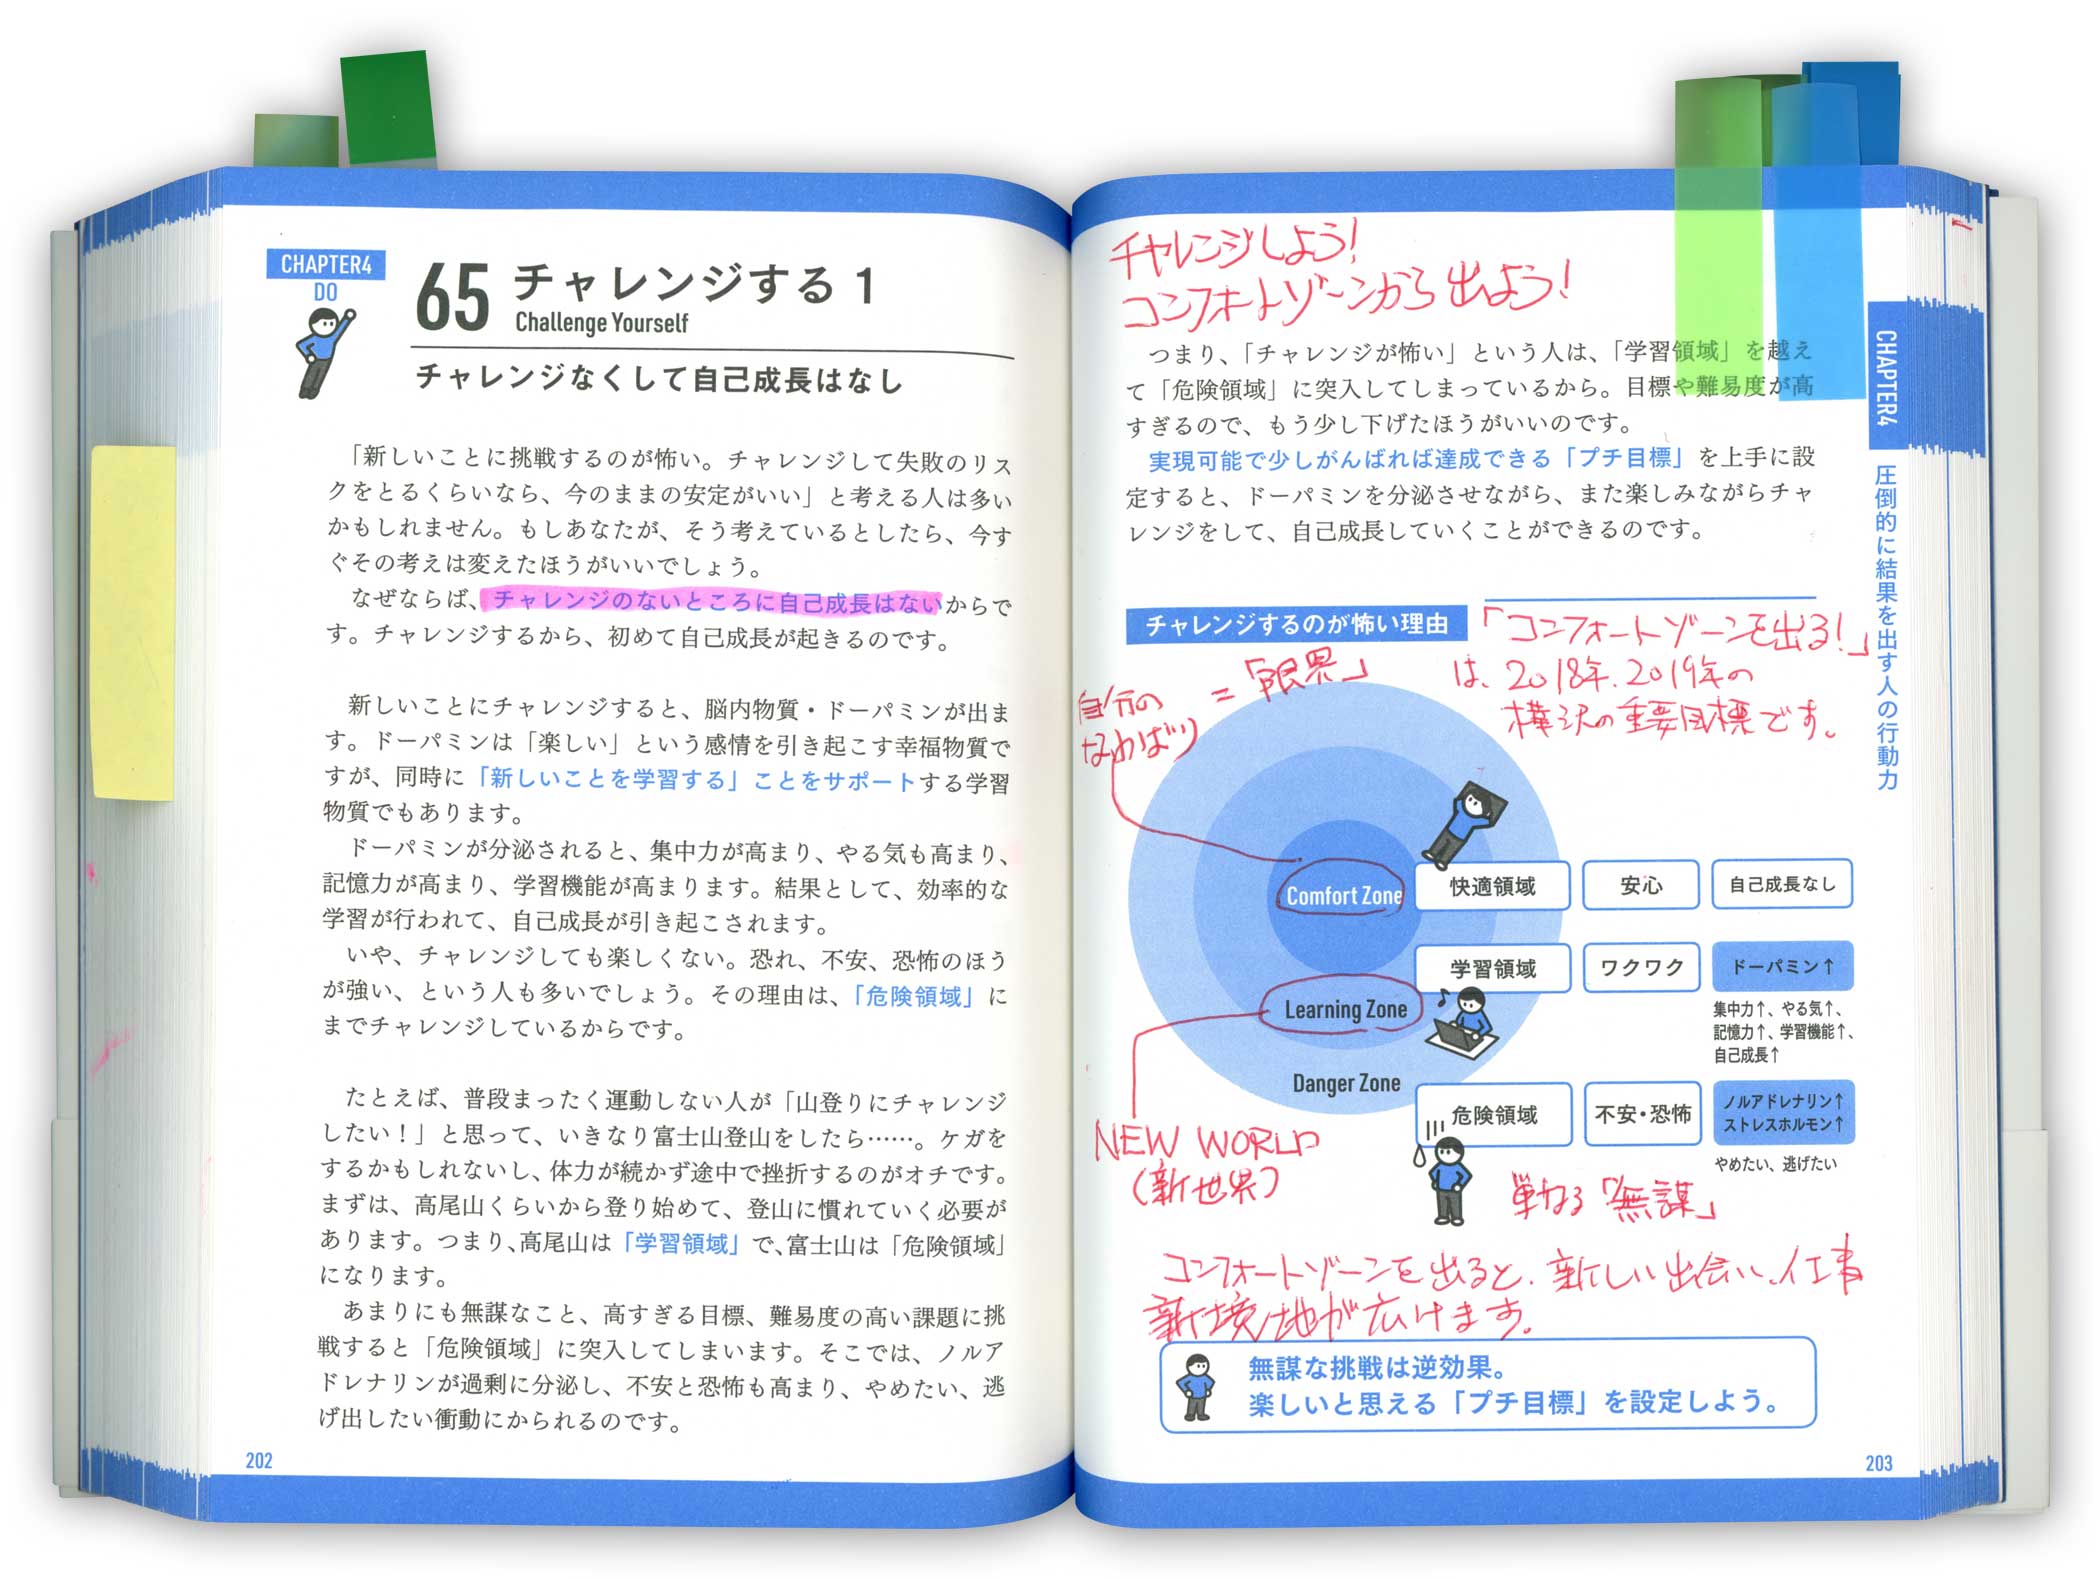 CHAPTER4
DO
65 チャレンジする 1
Challenge Yourself
チャレンジなくして自己成長はなし
「新しいことに挑戦するのが怖い。チャレンジして失敗のリス
クをとるくらいなら、今のままの安定がいい」と考える人は多い
かもしれません。もしあなたが、そう考えているとしたら、今す
ぐその考えは変えたほうがいいでしょう。
なぜならば、チャレンジのないところに自己成長はないからで
す。チャレンジするから、初めて自己成長が起きるのです。
新しいことにチャレンジすると、脳内物質・ドーパミンが出ま
す。ドーパミンは「楽しい」という感情を引き起こす幸福物質で
すが、同時に「新しいことを学習する」ことをサポートする学習
物質でもあります。
ドーパミンが分泌されると、集中力が高まり、やる気も高まり、
記憶力が高まり、学習機能が高まります。結果として、効率的な
学習が行われて、自己成長が引き起こされます。
いや、チャレンジしても楽しくない。恐れ、不安、恐怖のほう
が強い、という人も多いでしょう。その理由は、「危険領域」に
までチャレンジしているからです。
たとえば、普段まったく運動しない人が「山登りにチャレンジ
したい！」と思って、いきなり富士山登山をしたら……。ケガを
するかもしれないし、体力が続かず途中で挫折するのがオチです。
まずは、高尾山くらいから登り始めて、登山に慣れていく必要が
あります。つまり、高尾山は「学習領域」で、富士山は「危険領域」
になります。
あまりにも無謀なこと、高すぎる目標、難易度の高い課題に挑
戦すると「危険領域」に突入してしまいます。そこでは、ノルア
ドレナリンが過剰に分泌し、不安と恐怖も高まり、やめたい、逃
げ出したい衝動にかられるのです。
202
チャレンジしよう!
コンフォートゾーンから出よう!
つまり、「チャレンジが怖い」という人は、「学習領域」を越え
て「危険領域」に突入してしまっているから。目標や難易度が高
すぎるので、もう少し下げたほうがいいのです。
実現可能で少しがんばれば達成できる「プチ目標」を上手に設
定すると、ドーパミンを分泌させながら、また楽しみながらチャ
レンジをして、自己成長していくことができるのです。
CHAPTER4
圧倒的に結果を出す人の行動力
チャレンジするのが怖い理由
「コンフォートゾーンを出る!」
は、2018年、2019年の
樺沢の重要目標です。
自分の
なわばり
=「限界」
Comfort Zone
快適領域
安心
自己成長なし
Learning Zone
学習領域
ワクワク
ドーパミン↑
集中力↑、やる気↑、
記憶力↑、学習機能↑、
自己成長↑
Danger Zone
危険領域
不安・恐怖
ノルアドレナリン↑
ストレスホルモン↑
やめたい、逃げたい
NEW WORLD
(新世界)
単なる「無謀」
コンフォートゾーンを出ると、新しい出会い、仕事
新境地が広けます。
無謀な挑戦は逆効果。
楽しいと思える「プチ目標」を設定しよう。
203